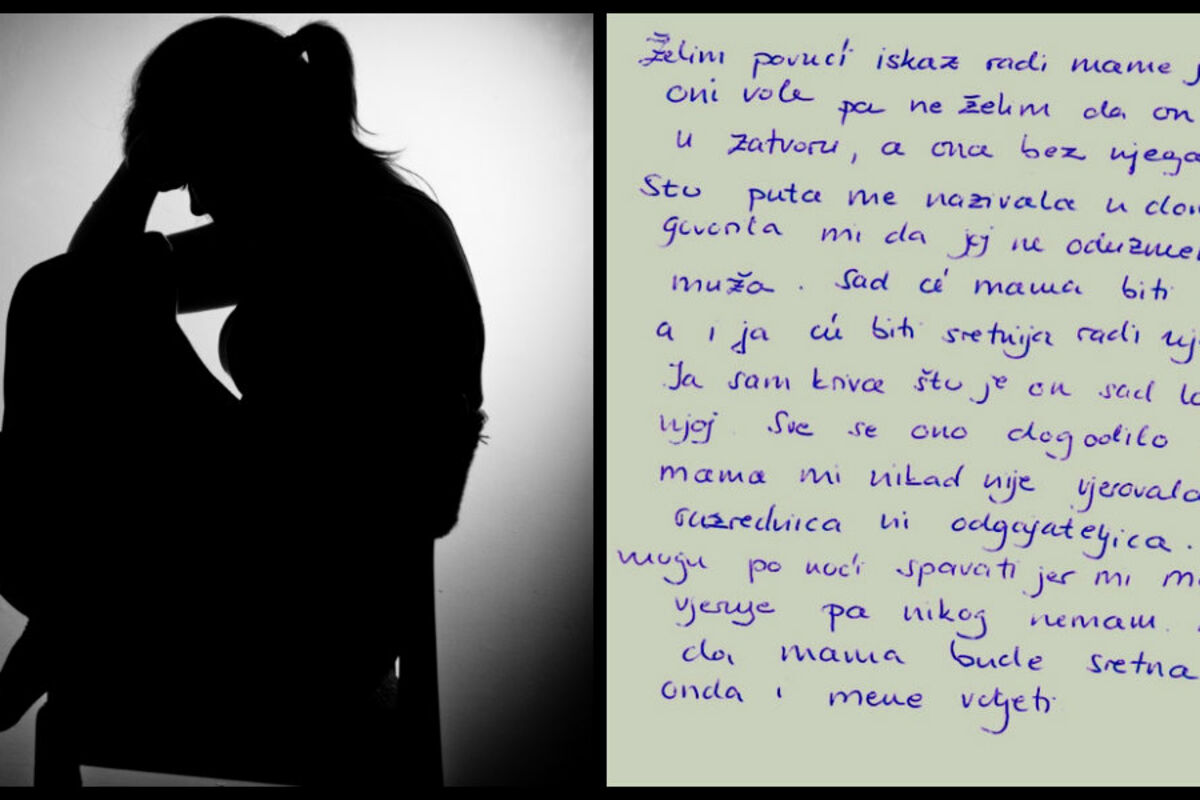 Želim povući iskaz radi mame j
oni vole pa ne želim da on
u zatvoru, a ona bez njega
Sto puta me nazivala u dom
govorila mi da joj ne oduzmem
muža. Sad će mama biti
a i ja ću biti sretnija radi nje
Ja sam kriva što je on sad lo
njoj. Sve se ono dogodilo
mama mi nikad nije vjerovala
razrednica ni odgajateljica.
mogu po noći spavati jer mi m
vjeruje pa nikog nemam.
da mama bude sretna
onda i mene voljeti